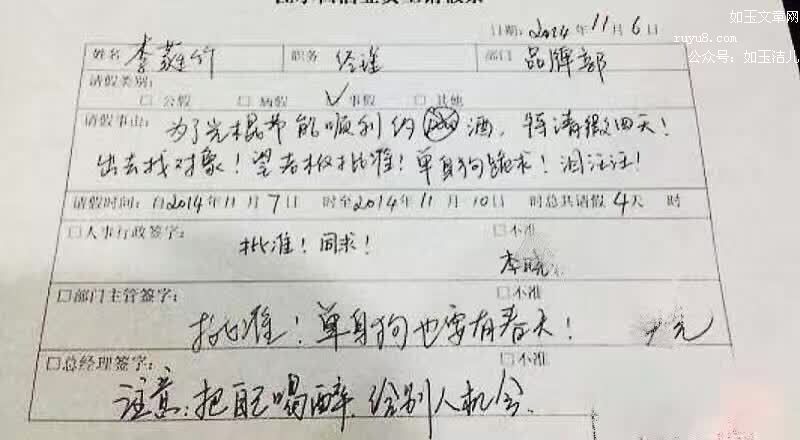 如玉文章网
ruyu8.com
公众号：如玉洁儿
日期：2014年11月6日
姓名 李蕤竹 职务 经理 部门 品牌部
请假类别：
□公假 □病假 ✓事假 □其他
请假事由：为了光棍节能顺利约酒，特请假四天！
出去找对象！望老板批准！单身狗跪求！泪汪汪！
请假时间：自2014年11月7日 时至2014年11月10日 时总共请假4天 时
□人事行政签字： □不准
批准！同求！
李晓
□部门主管签字： □不准
批准！单身狗也要有春天！
□总经理签字： □不准
注意：把自己喝醉，给别人机会。